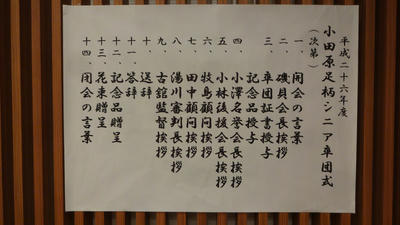 平成二十六年度
小田原足柄シニア卒団式
(次第)
一、開会の言葉
二、磯貝会長挨拶
三、卒団証書授与
記念品授与
四、小澤名誉会長挨拶
五、小林後援会長挨拶
六、牧島顧問挨拶
七、田中顧問挨拶
八、湯川審判長挨拶
九、古舘監督挨拶
十、送辞
十一、答辞
十二、記念品贈呈
十三、花束贈呈
十四、閉会の言葉